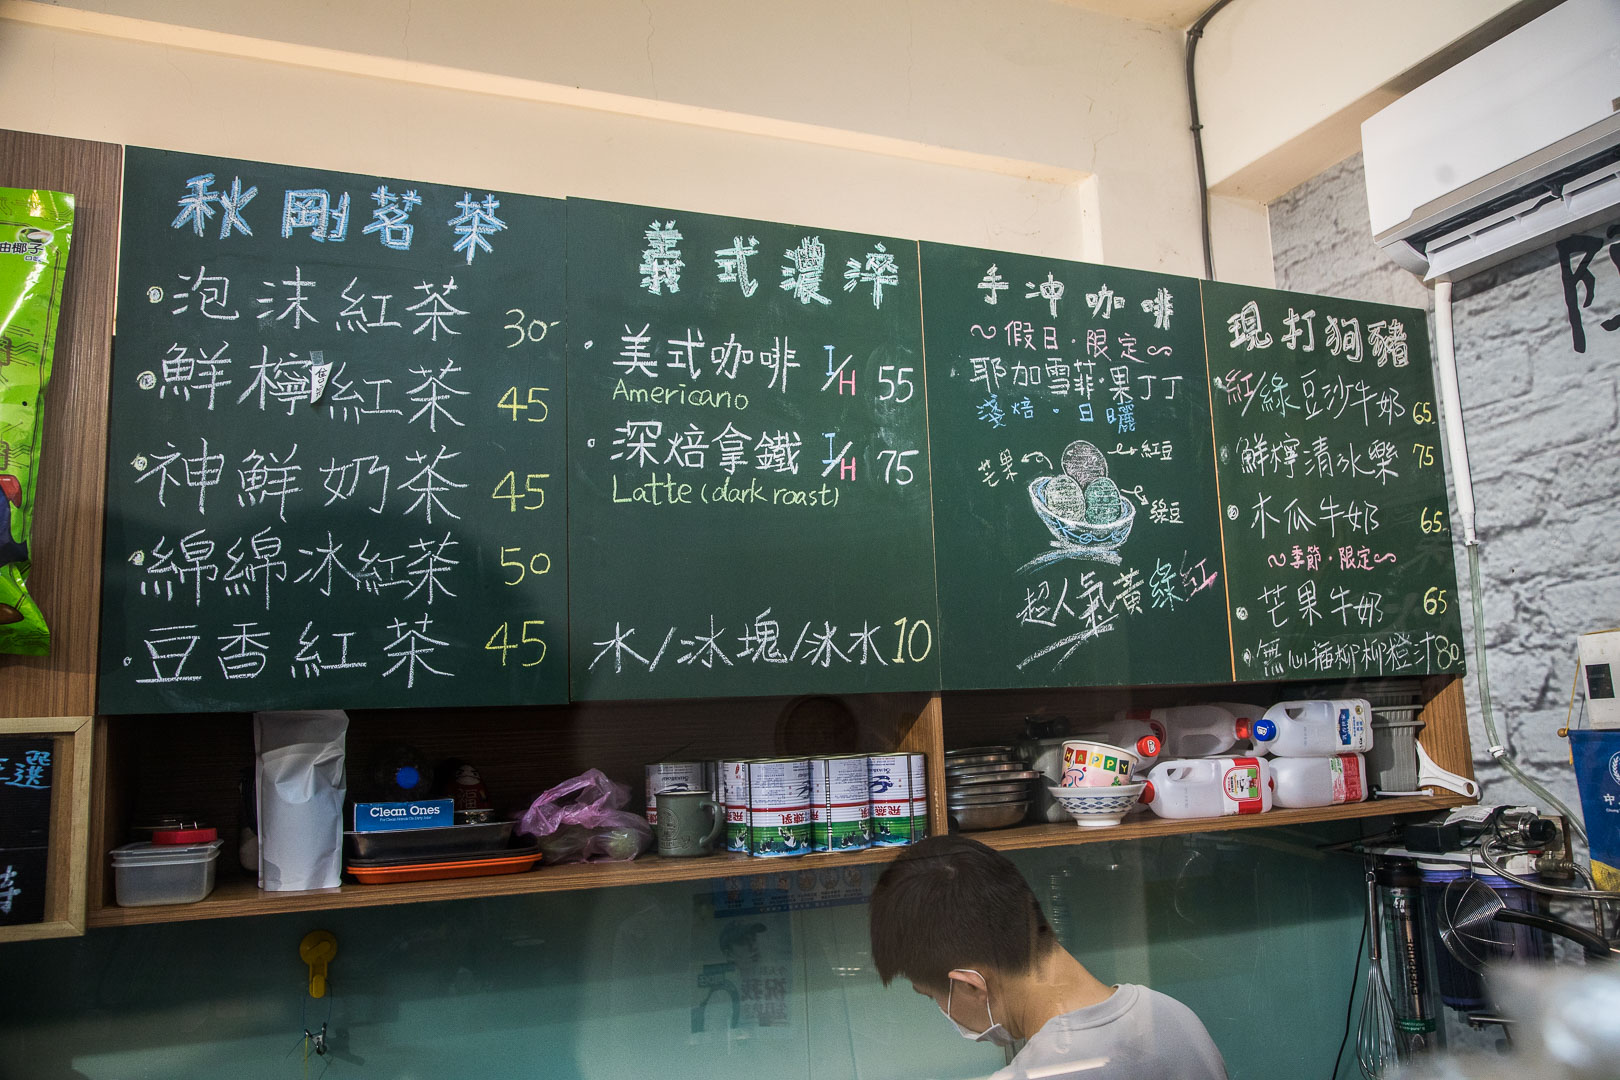 秋剛茗茶
泡沫紅茶 30-
鮮檸紅茶 45
神鮮奶茶 45
綿綿冰紅茶 50
豆香紅茶 45
義式濃淬
美式咖啡 I/H 55
Americano
深焙拿鐵 I/H 75
Latte (dark roast)
水/冰塊/冰水 10
手沖咖啡
~假日·限定~
耶加雪菲·果丁丁
淺焙·日曬
芒果
紅豆
綠豆
超人氣黃綠紅
現打狗豬
紅/綠豆沙牛奶 65.
鮮檸清冰樂 75
木瓜牛奶 65.
~季節·限定~
芒果牛奶 65
無心插柳柳橙汁 80.
Clean Ones
飛燕煉乳
飛燕煉乳
飛燕煉乳
HAPPY
由椰子